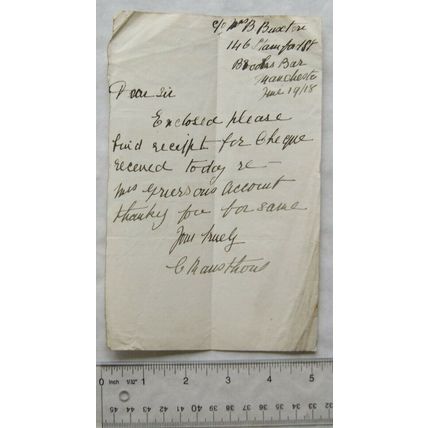 c/o Mrs B Buxton
146 Stamford St
Brooks Bar
Manchester
June 19/18
Dear Sir
Enclosed please
find receipt for Cheque
received today re-
Mrs Griersons Account
thanking you for same
Yours truly
0 Inch 1 2 3 4 5
1/32"
45 44 43 42 41 40 39 38 37 36 35 34 33 32